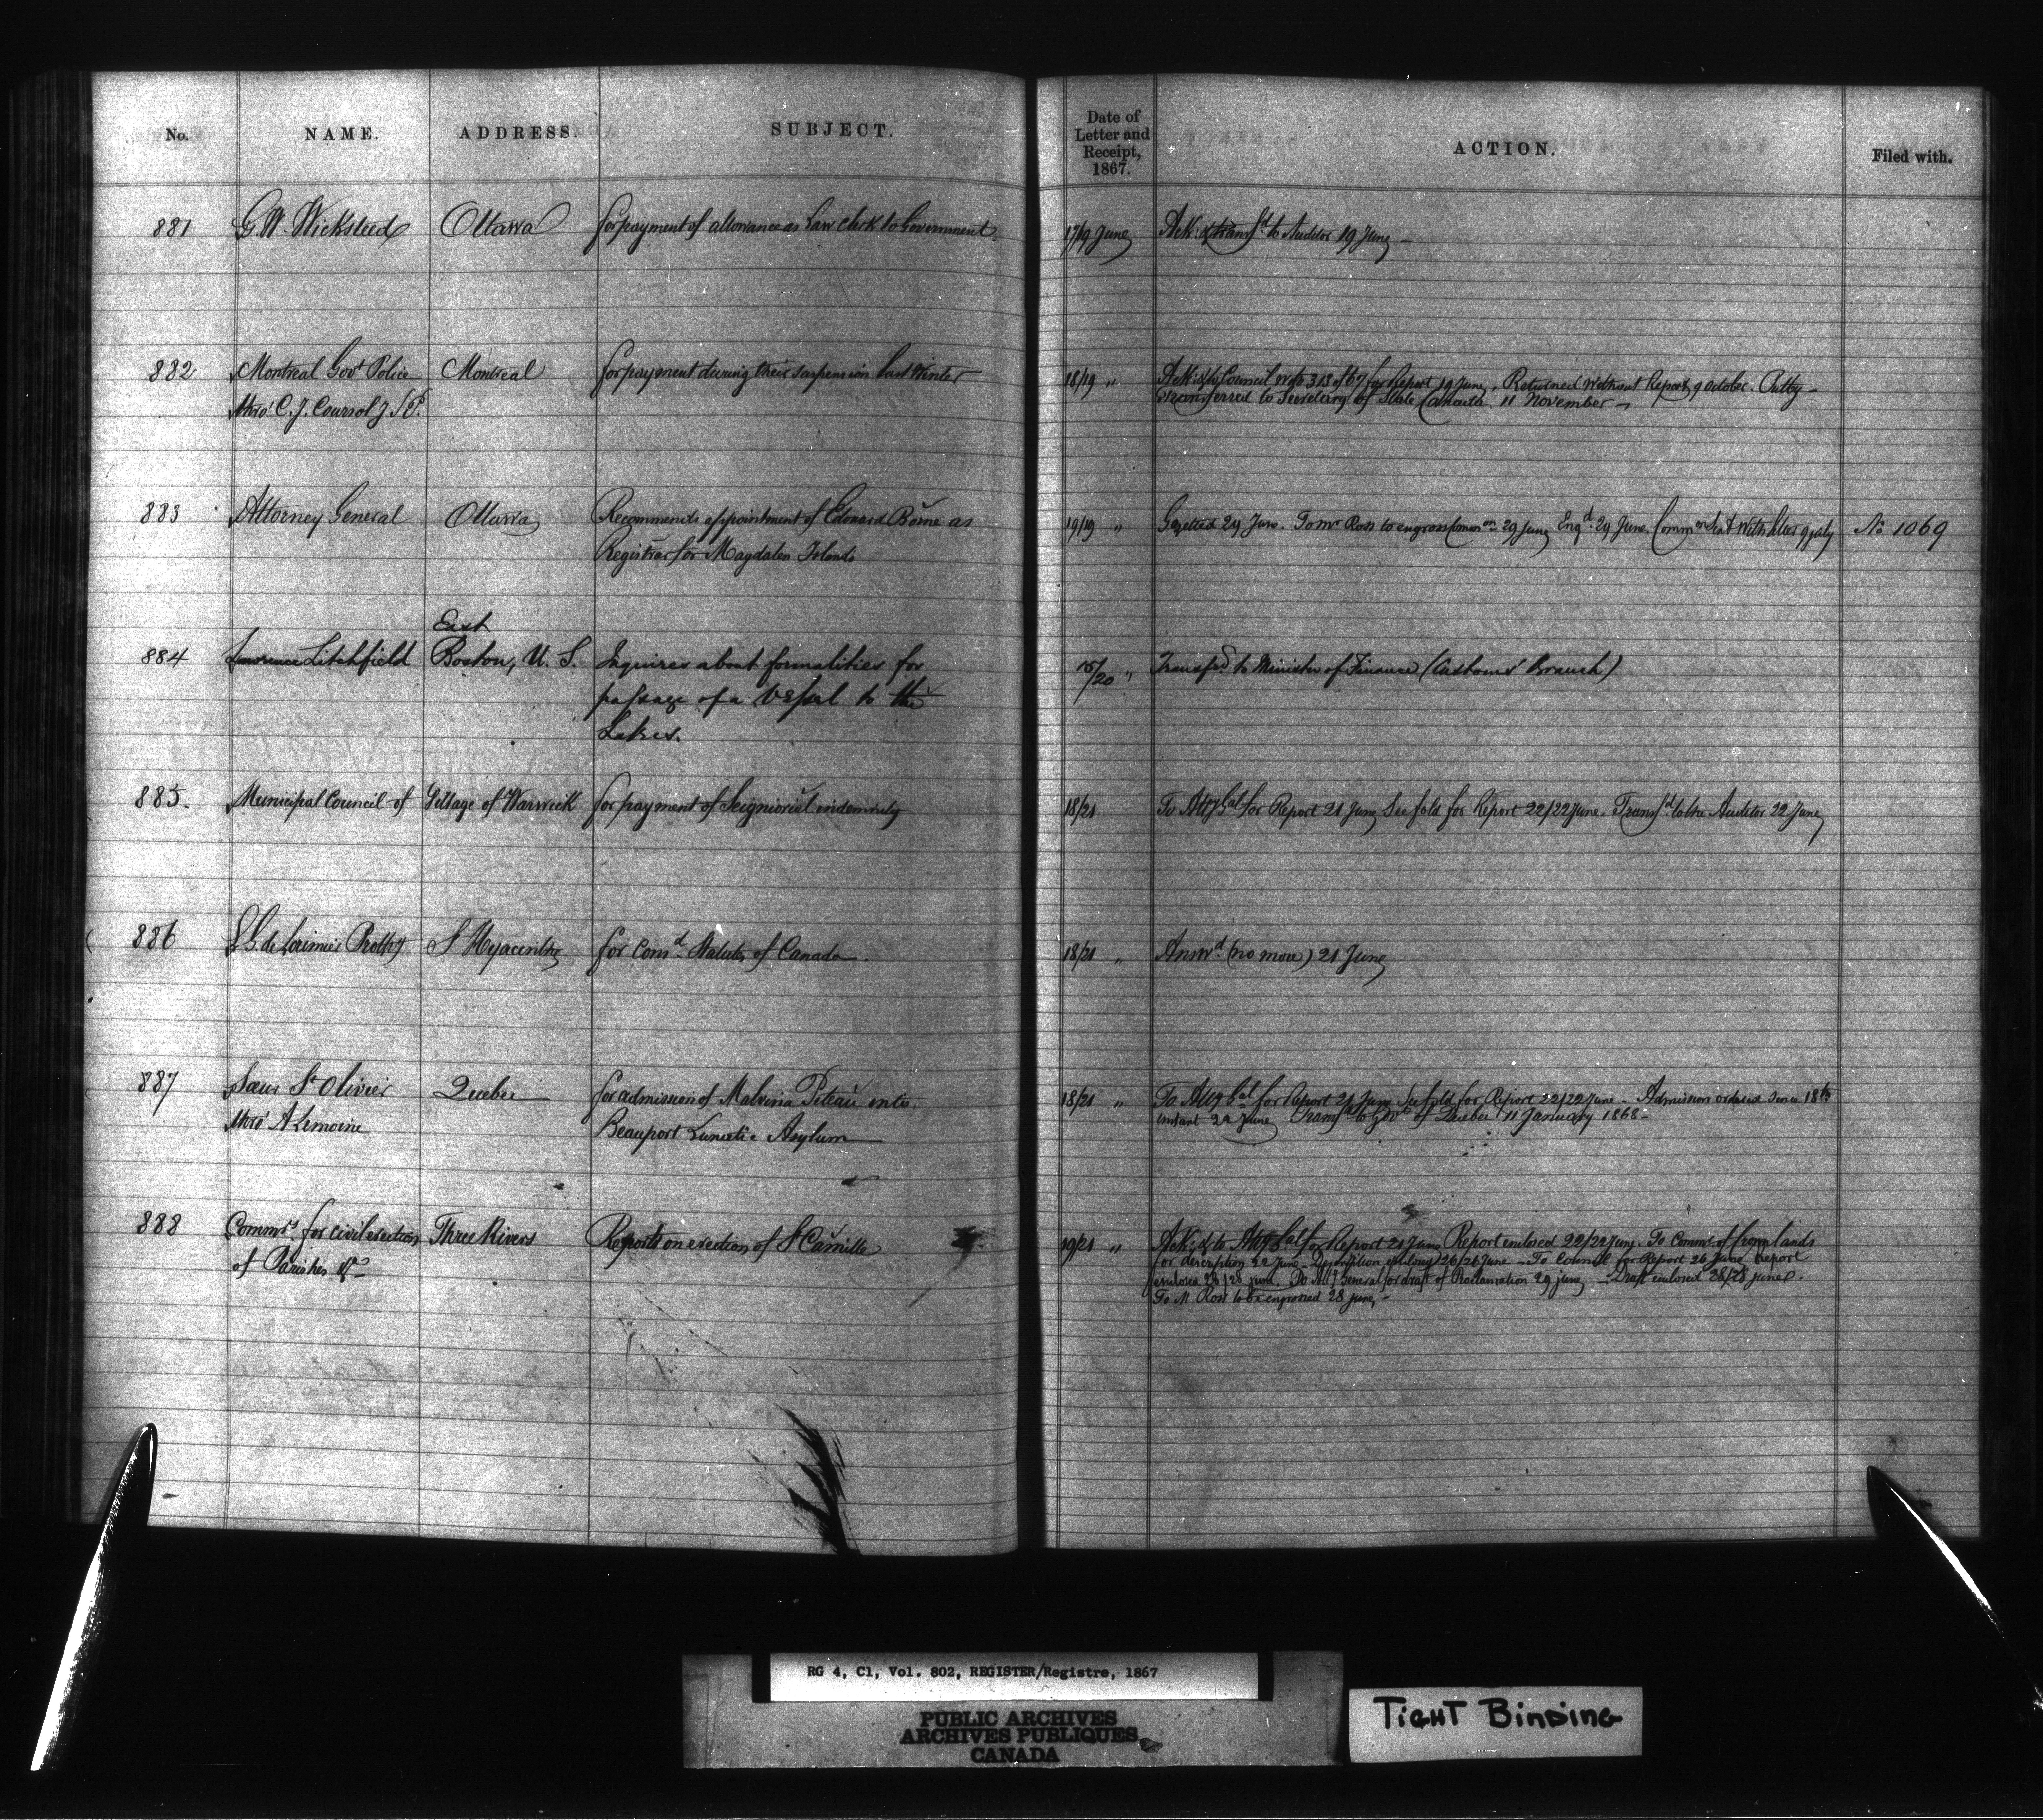 No. NAME. ADDRESS. SUBJECT. Date of Letter and Receipt, 1867. ACTION. Filed with.
881 G. W. Wicksteed Ottawa for payment of allowance as Law Clerk to Government 17/19 June Ack. & transfd. to Auditor 19 June
882 Montreal Govt Police Montreal for payment during their suspension last Winter 18/19 " Ack. & to Council with 313 of 67 for Report 19 June. Returned without Report 9 October.
thro' C. J. Coursol J.S.P. transferred to Secretary of State Canada 11 November
883 Attorney General Ottawa Recommends appointment of Edouard Borne as 19/19 " Gazetted 29 June. To Mr Ross to engross Common 29 June Engd. 29 June. Common Sent with letter 9 July No 1069
Registrar for Magdalen Islands
East
884 Lawrence Litchfield Boston, U. S. Inquires about formalities for 15/20 " Transfd. to Minister of Finance (Customs' Branch)
passage of a vessel to the
Lakes.
885. Municipal Council of Village of Warwick for payment of Seigniorial indemnity 18/21 To Atty Gal for Report 21 June See fold for Report 22/22 June. Transfd. to the Auditor 22 June
886 de Lorimier St Hyacinthe for Consd. Statutes of Canada. 18/21 " Answd. (no more) 21 June
887 Soeur St Olivier Quebec for admission of Malvina Piteau into 18/21 " To Atty Gal for Report 21 June See fold for Report 22/22 June - Admission ordered since 18th
thro' A Lemoine Beauport Lunatic Asylum instant 22 June Transfd to Govt of Quebec 11 January 1868-
888 Commrs. for civil erection Three Rivers Reports on erection of St Camille 19/21 " Ack. & to Atty Gal for Report 21 June Report enclosed 22/22 June. To Commr. of Crown lands
of Parishes &c for description 22 June - Description enclosed 26/26 June - To Council for Report 26 June Report
enclosed 28/28 June. To Atty General for draft of Proclamation 29 June - Draft enclosed 28/28 June.
To M Ross to be engrossed 28 June -
RG 4, C1, Vol. 802, REGISTER/Registre, 1867
PUBLIC ARCHIVES
ARCHIVES PUBLIQUES
CANADA
TIGHT BINDING